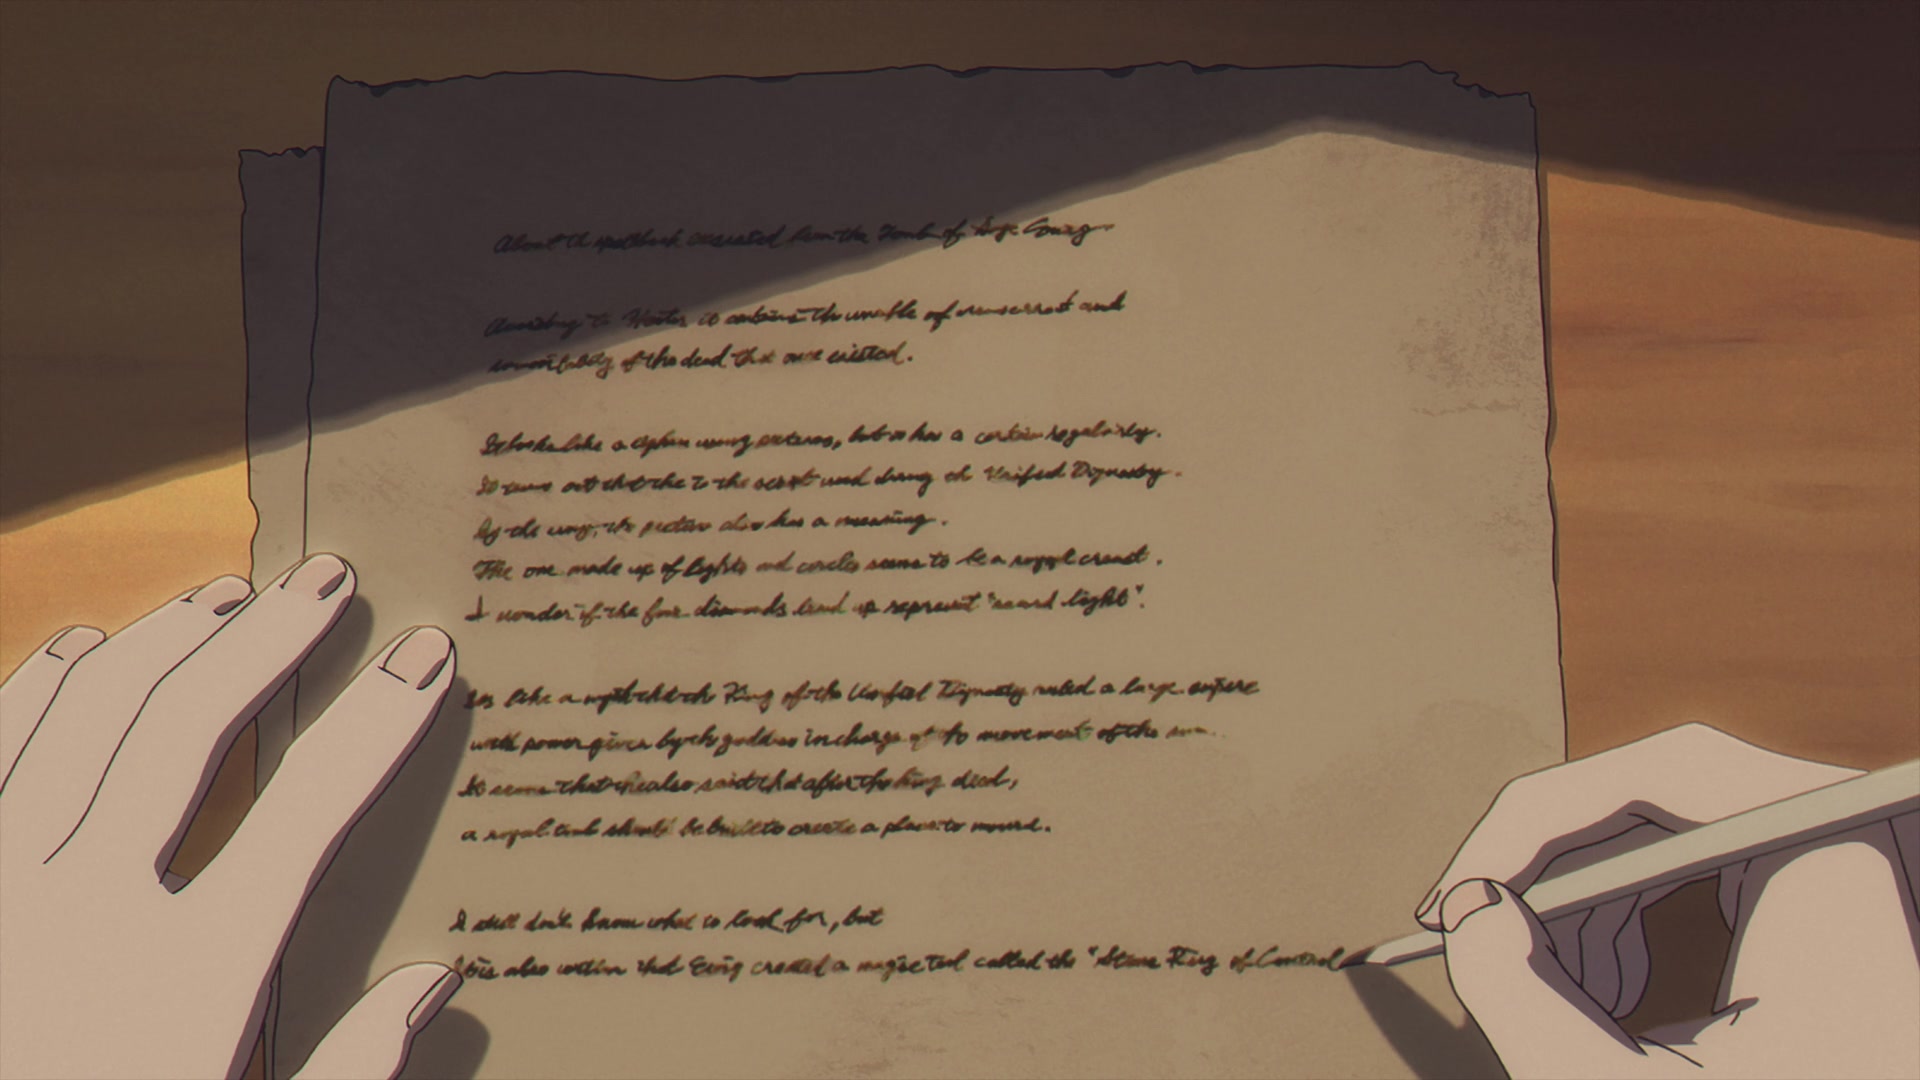 About the spellbook excavated from the Tomb of
According to it contains the of and
of the dead that once existed.
It looks like a using pictures, but it has a certain regularity.
It turns out that the to the script used during the Unified Dignasty.
By the way, the picture also has a meaning.
The one made up of lights and circles seems to be a royal crest.
I wonder if the four diamonds lined up represent "sword light".
like a myth that the King of the Unified Dignasty ruled a large empire
with power given by the goddess in charge of the movement of the sun.
It seems that he also said that after the king died,
a royal tomb should be built to create a place to mourn.
I still don't know what to look for, but
It is also written that King created a magic tool called the "Stone Ring of Control